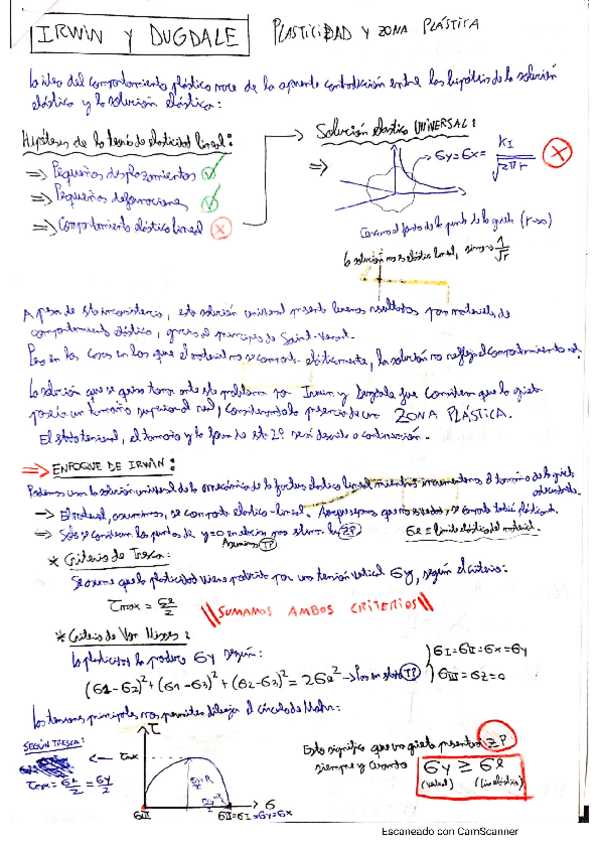 IRWIN Y DUGDALE PLASTICIDAD Y ZONA PLÁSTICA
La idea del comportamiento plástico nace de la aparente contradicción entre las hipótesis de la solución
elástica y la solución elástica:
Hipótesis de la teoría de elasticidad lineal:
⇒ Pequeños desplazamientos
⇒ Pequeñas deformaciones
⇒ Comportamiento elástico lineal
Solución elástica UNIVERSAL:
⇒ σy = σx = KI / √2πr
Cercano al fondo de la punta de la grieta (r→0)
la solución no es elástica lineal, sino → 1/√r
A pesar de esta inconsistencia, esta solución universal presenta buenos resultados para materiales de
comportamiento elástico, gracias al principio de Saint-Venant.
Pero en los casos en los que el material no se comporta elásticamente, la solución no refleja el comportamiento
La solución que se quiso tomar ante este problema por Irwin y Dugdale fue considerar que la grieta
poseía un tamaño superior al real, considerando la presencia de una ZONA PLÁSTICA.
El estado tensional, el tamaño y la forma de esta se describe a continuación.
⇒ ENFOQUE DE IRWIN:
Podemos usar la solución universal de la mecánica de la fractura elástica lineal mientras incrementemos el tamaño de la grieta
→ El material, asumimos, se comporta elástico-lineal. Aunque sepamos que se comporta plásticamente.
→ Solo se consideran los puntos de y=0 ZP
σe ≡ límite elástico del material.
Asumimos TP
* Criterio de Tresca:
Se asume que la plasticidad viene por una tensión vertical σy, según el criterio:
τmax = σe/2
\\SUMAMOS AMBOS CRITERIOS\\
* Criterio de Von Misses:
La plasticidad la produce σy según:
(σ1-σ2)² + (σ1-σ3)² + (σ2-σ3)² = 2σe² → TP
σI = σII = σx = σy
σIII = σz = 0
Las tensiones principales nos permiten dibujar el círculo de Mohr:
SEGÚN TRESCA:
τmax = σe/2 = σy/2
τ
τmax
σ
σIII
σII = σI = σy = σx
Esto significa que una grieta presentará ZP
siempre y cuando σy ≥ σe
Escaneado con CamScanner